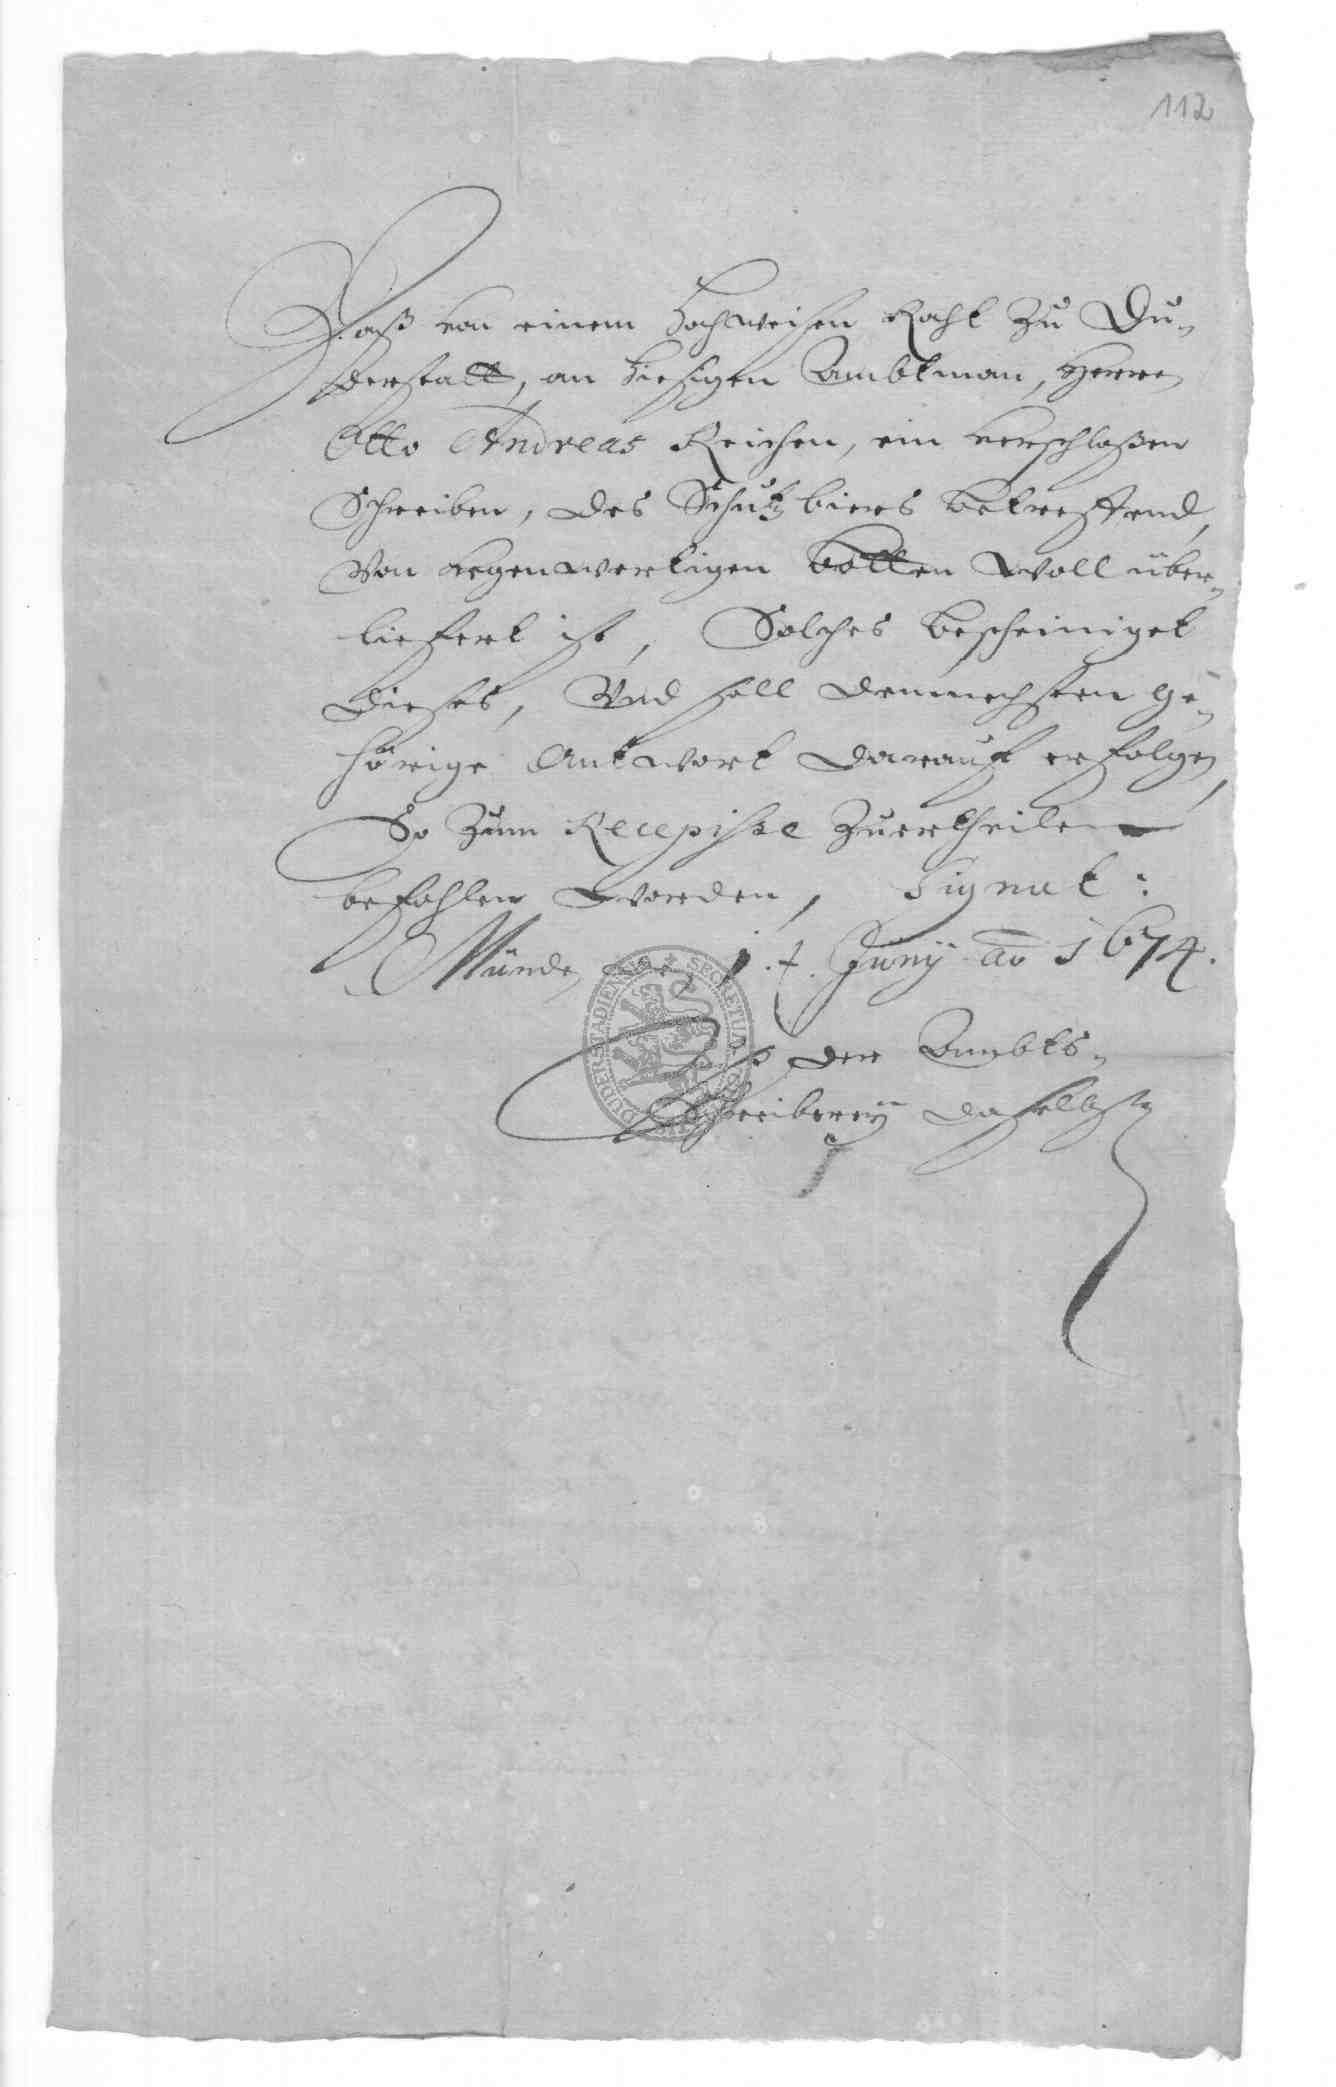 112
Daß von einem Hochweisen Raht zu Du-
derstatt, an hiesigen Ambtman, Herrn
Otto Andreas Reichen, ein verschloßen
Schreiben, des Schutzbiers betreffend,
Von kegenwertigen botten woll über-
liefert ist, Solches bescheiniget
dieses, Vnd soll demnechsten ge-
hörige Antwort darauff erfolgen,
So zum Recepisse zuertheilen
befohlen worden, Signat:
Münden, Juny ao 1674.
Auß der Ambts-
schreiberey daselbst
SECRETUM DUDERSTADIENSIS